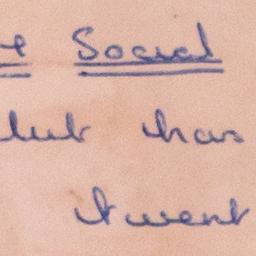 Social
lub has
twent